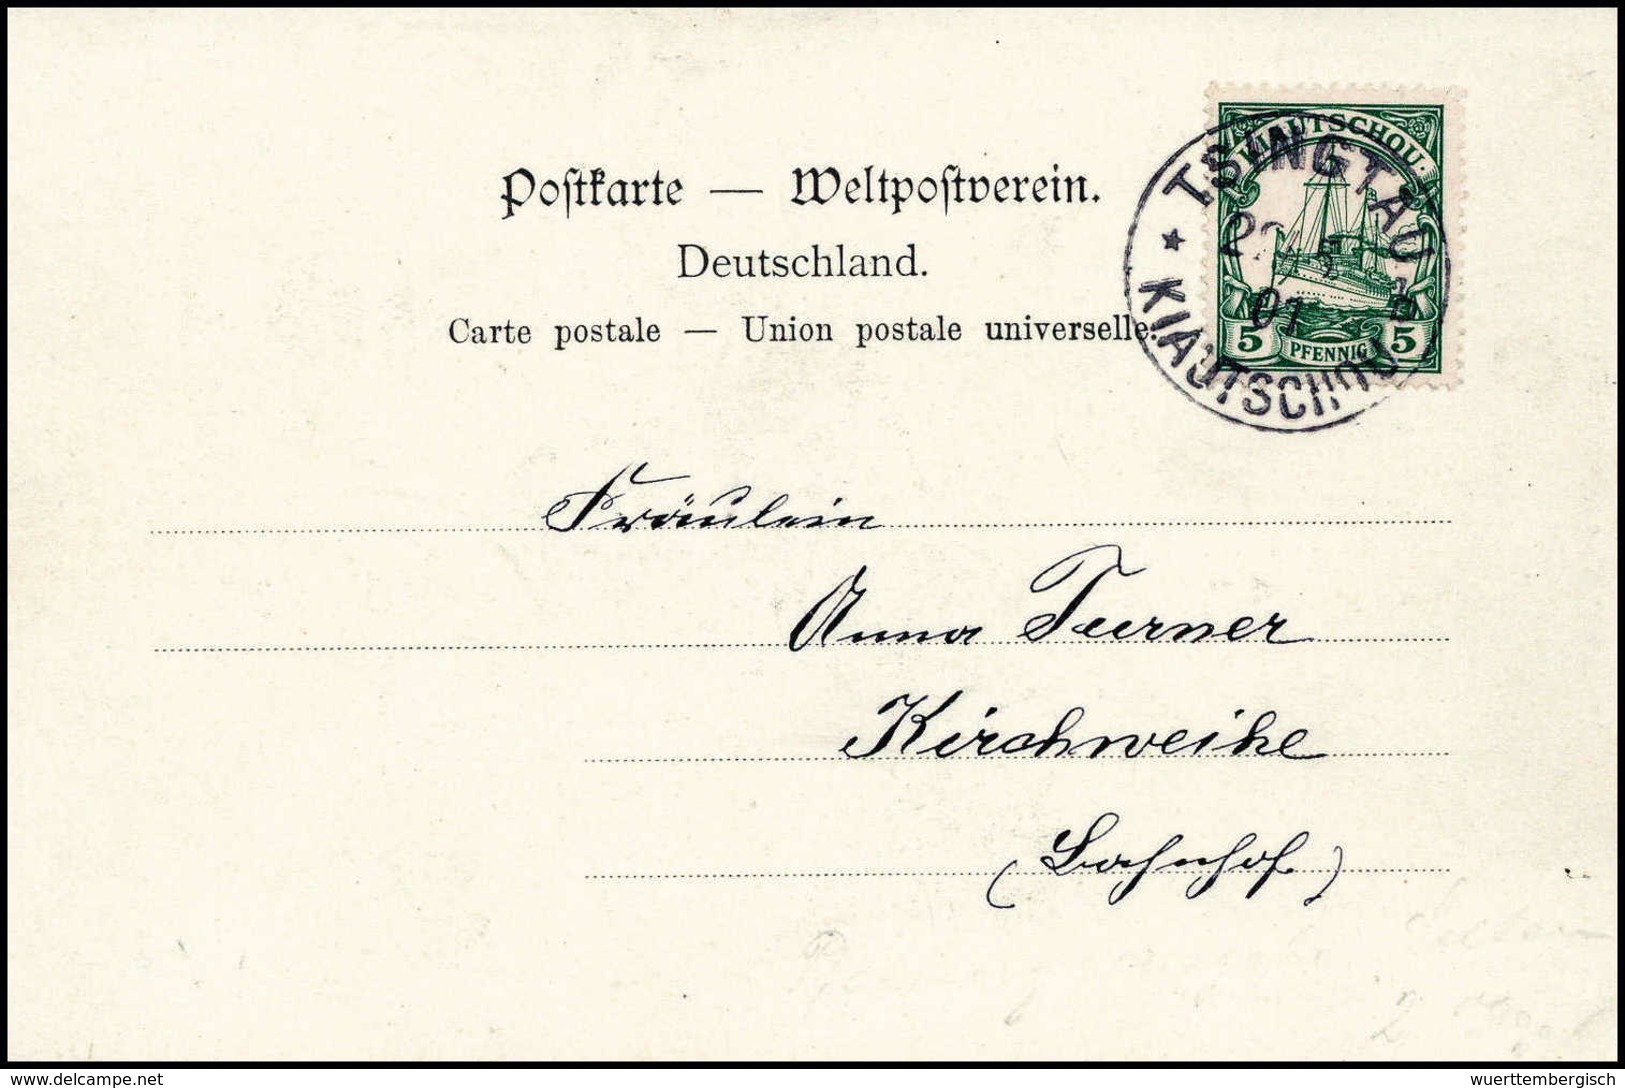 Postkarte — Weltpostverein.
Deutschland.
Carte postale — Union postale universelle.
KIAUTSCHOU
5 PFENNIG 5
TSINGTAU
5
01
* KIAUTSCHOU
Fräulein
Anna Turner
Kirchweihe
(Bahnhof)
delcampe.net
wuerttembergisch